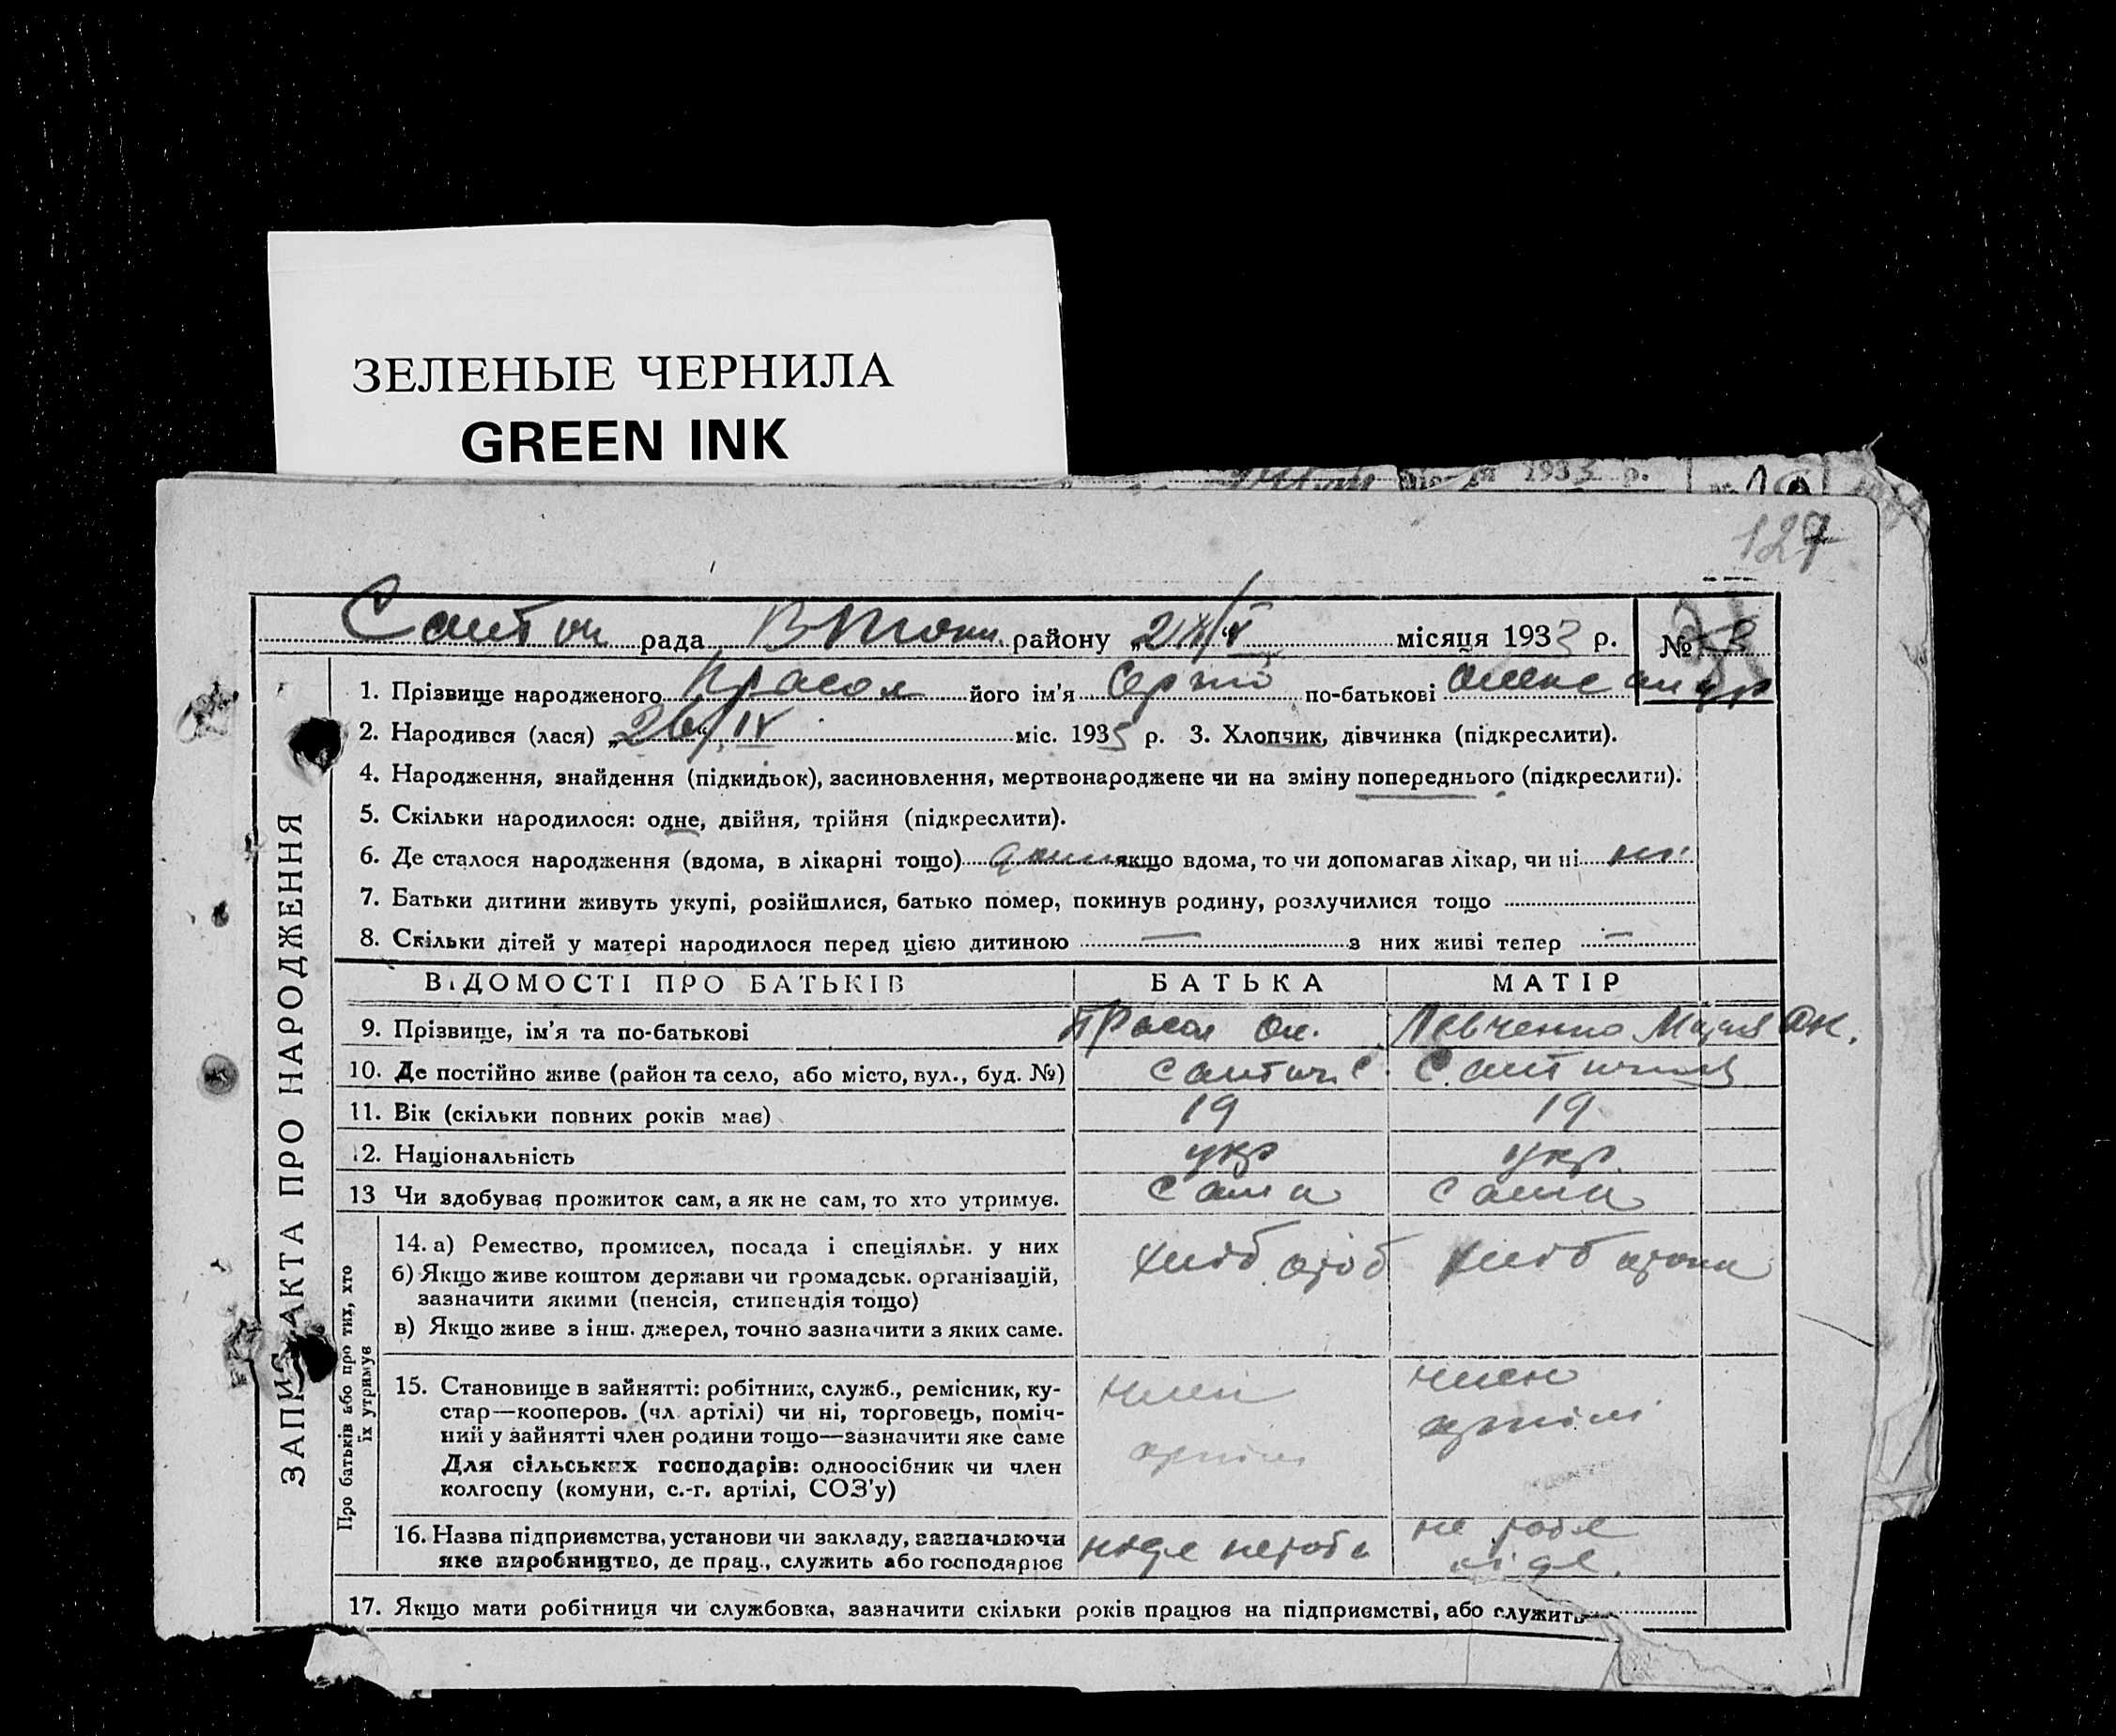 ЗЕЛЕНЫЕ ЧЕРНИЛА
GREEN INK
1933 р.
127
рада району місяця 1933 р. №
1. Прізвище народженого Красоля його ім'я Сергій по-батькові Олександр
2. Народився (лася) „26“ IV міс. 1933 р. 3. Хлопчик, дівчинка (підкреслити).
4. Народження, знайдення (підкидьок), засиновлення, мертвонароджене чи на зміну попереднього (підкреслити).
5. Скільки народилося: одне, двійня, трійня (підкреслити).
6. Де сталося народження (вдома, в лікарні тощо) якщо вдома, то чи допомагав лікар, чи ні ні
7. Батьки дитини живуть укупі, розійшлися, батько помер, покинув родину, розлучилися тощо
8. Скільки дітей у матері народилося перед цією дитиною — з них живі тепер —
ЗАПИС АКТА ПРО НАРОДЖЕННЯ
ВІДОМОСТІ ПРО БАТЬКІВ БАТЬКА МАТІР
9. Прізвище, ім'я та по-батькові Ол. Левченко
10. Де постійно живе (район та село, або місто, вул., буд. №)
11. Вік (скільки повних років має) 19 19
12. Національність укр укр.
13 Чи здобував прожиток сам, а як не сам, то хто утримує. сама сама
Про батьків або про тих, хто
їх утримує
14. а) Ремество, промисел, посада і спеціяльн. у них хліб ороб хліб
б) Якщо живе коштом держави чи громадськ. організацій,
зазначити якими (пенсія, стипендія тощо)
в) Якщо живе з інш. джерел, точно зазначити з яких саме.
15. Становище в зайнятті: робітник, служб., ремісник, ку-
стар—кооперов. (чл. артілі) чи ні, торговець, поміч-
ний у зайнятті член родини тощо—зазначити яке саме
Для сільських господарів: одноосібник чи член
колгоспу (комуни, с.-г. артілі, СОЗ'у)
член
артілі
член
артілі
16. Назва підприємства, установи чи закладу, зазначаючи
яке виробництво, де прац., служить або господарює
ніде не робе
не робе
ніде.
17. Якщо мати робітниця чи службовка, зазначити скільки років працює на підприємстві, або служить